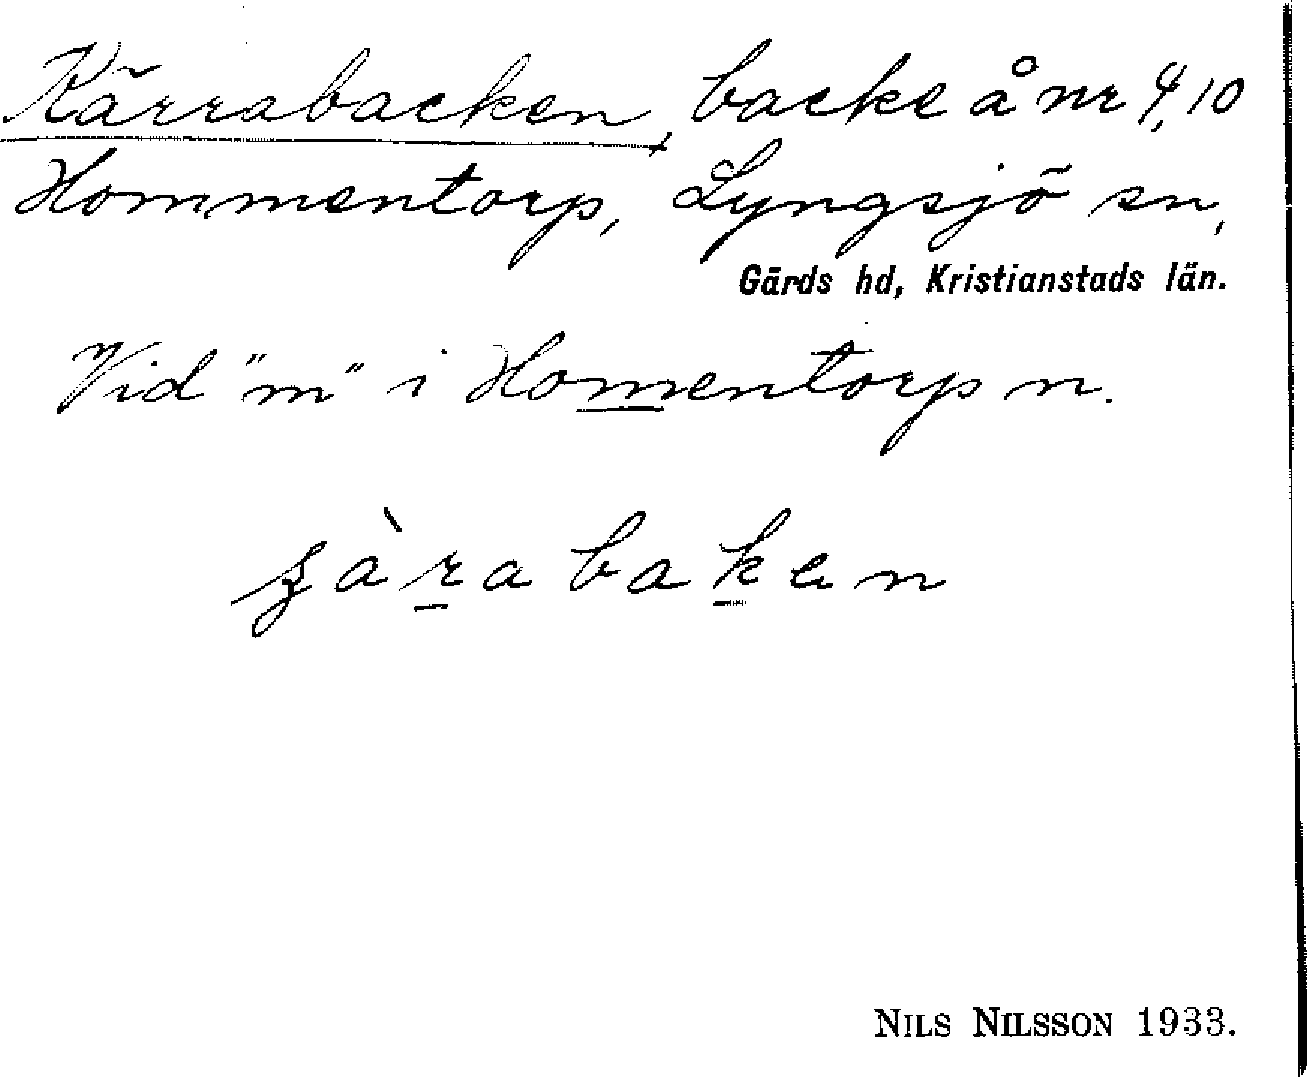 Kärrabacken, backe å nr 4, 10
Hommentorp, Lyngsjö sn,
Gärds hd, Kristianstads län.
Vid "m" i Homentorp n.
ʒàrabaken
NILS NILSSON 1933.